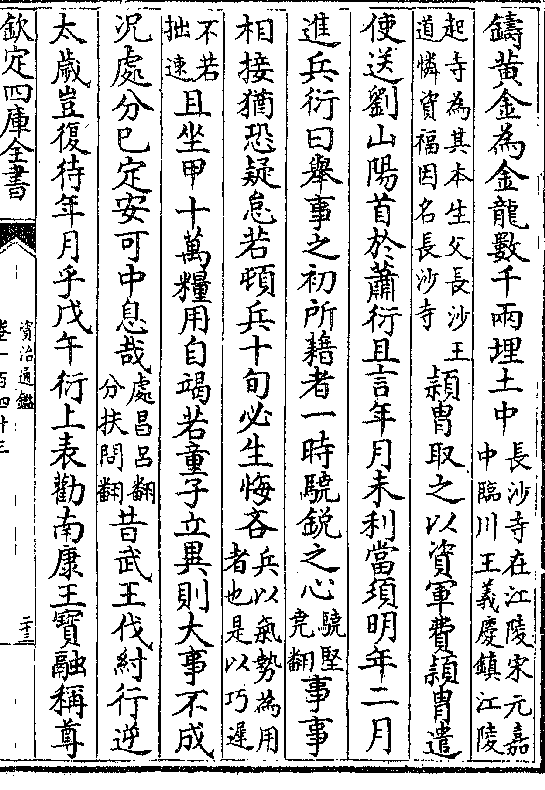 鑄黄金為金龍數千兩埋土中長沙寺在江陵宋元嘉中臨川王義慶鎮江陵
起寺為其本生父長沙王道憐資福因名長沙寺頴胄取之以資軍費頴胄遣
使送劉山陽首於蕭衍且言年月未利當須明年二月
進兵衍曰舉事之初所藉者一時驍鋭之心驍堅堯翻事事
相接猶恐疑怠若頓兵十旬必生悔吝兵以氣勢為用者也是以巧遲
不若拙速且坐甲十萬糧用自竭若童子立異則大事不成
況處分已定安可中息哉處昌呂翻分扶問翻昔武王伐紂行逆
太歲豈復待年月乎戊午衍上表勸南康王寶融稱尊
欽定四庫全書
資治通鑑
卷一百四十三
二十三